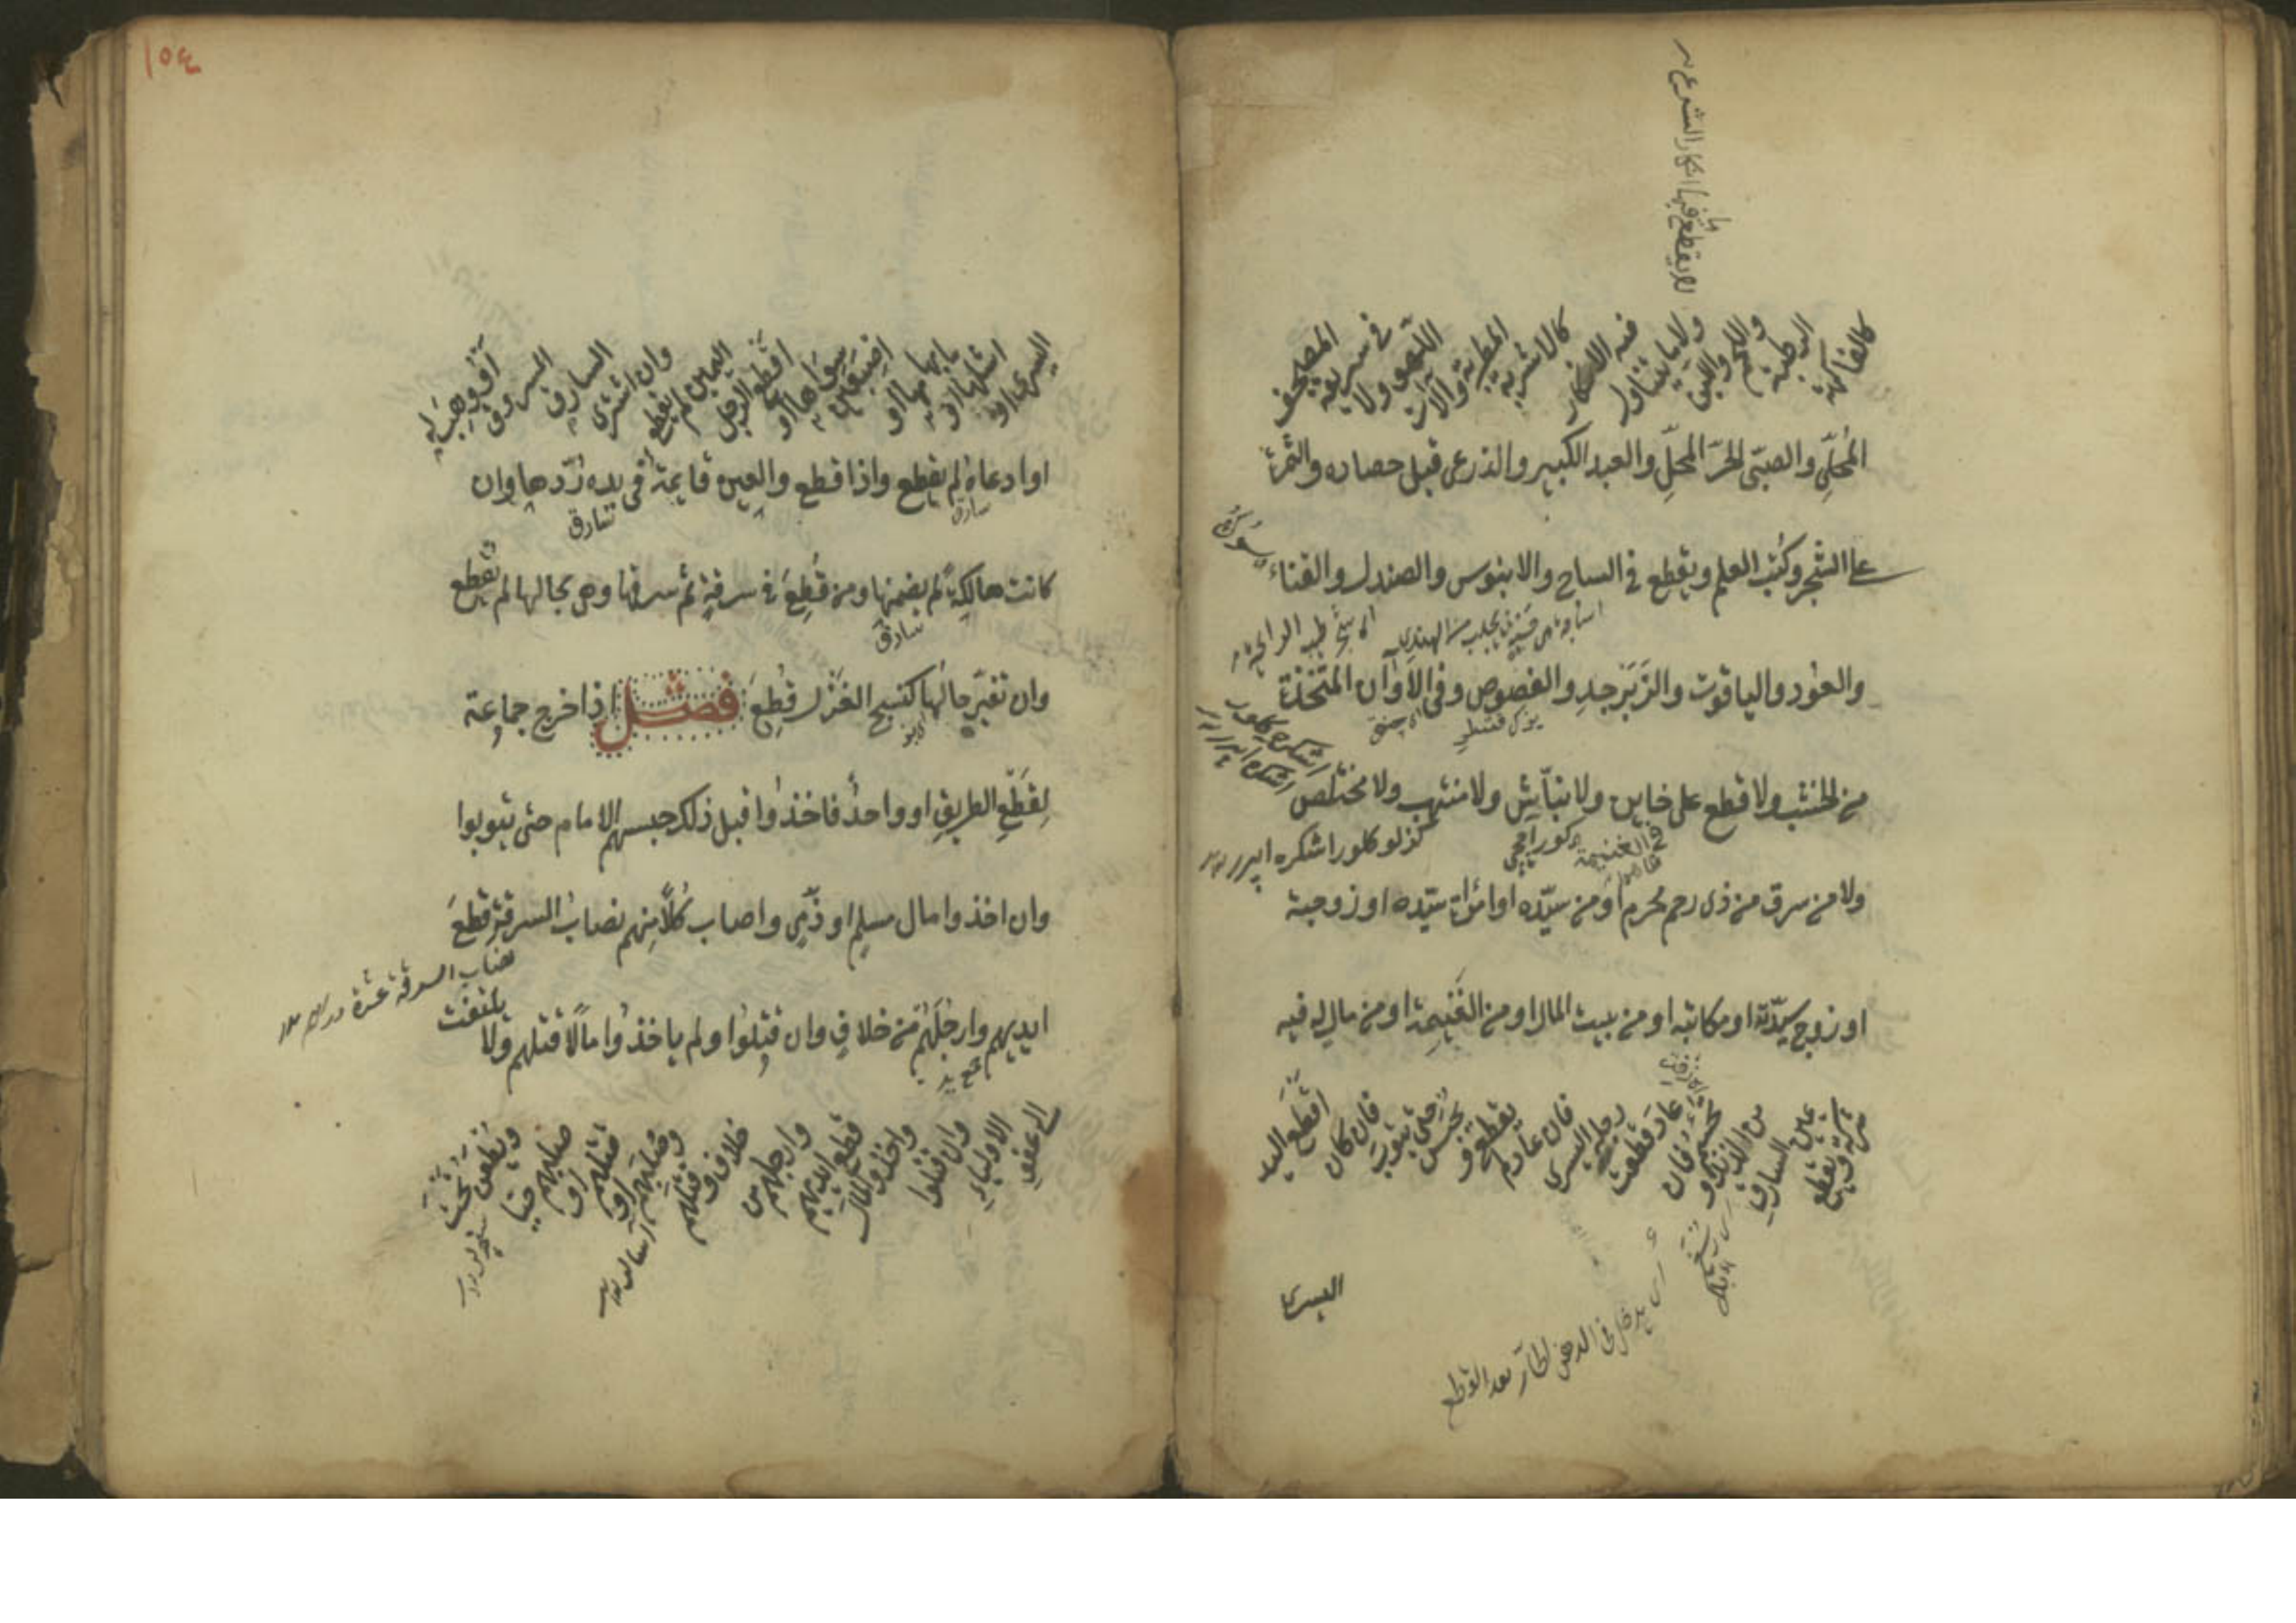 كالفاكهة الرطبة واللحم واللبن ولا ما يتناول فيه الانكار كالاشربة المطربة وآلات اللهو ولا في سرقة المصحف
المُحلّى والصبيّ الحرّ المحلّى والعبد الكبير والذرع قبل حصاده والثمرة
على الشجر وكتب العلم ويقطع في الساج والابنوس والصندل والقناء
والعود والياقوت والزبرجد والفصوص وفي الاوان المتخذة
من الخشب ولا قطع على خاين ولا نبّاش ولا منتهب ولا مختلص
ولا من سرق من ذى رحم محرم او من سيّده او امرأة سيّده او زوجته
او زوج سيّدته او مكاتبه او من بيت المال او من الغنيمة او من مال له فيه
شركة ويقطع يمين السارق من الزند وتحسم فان عاد قطعت رجله اليسرى فان عاد لم يقطع ويحبس حتى يتوب فان كان اقطع اليد
اليسرى
يدخل في الدهن الحارّ بعد القطع
١٥٤
اليسرى او اشلها او ابهامها او اصبعين سواها او اقطع الرجل اليمين لم يقطع وان اشترى السارق المسروق او وهب له
او ادعاه لم يقطع واذا قطع والعين قايمة في يده ردّها وان
سارق
سارق
كانت هالكة لم يضمنها ومن قُطِعَ في سرقة ثم سرقها وهي بحالها لم يقطع
سارق
وان تغيّر حالها كنسج الغزل قُطِعَ فصل اذا خرج جماعة
لقطع الطريق او واحدٌ فاخذُوا قبل ذلك حبسهم الامام حتى يتوبوا
وان اخذوا مال مسلم او ذمّي واصاب كُلًّا منهم نصابُ السرقة قطعَ
نصاب السرقة عشرة درهم
ايديهم وارجلهم من خلاف وان قتلُوا ولم ياخذُوا مالًا قتلهم ولا يلتفت
الى عفو الاولياء وان قتلوا واخذوا المال قطع ايديهم وارجلهم من خلاف او قتلهم وصلبهم او قتلهم او صلبهم حيّا ويطعن تحت